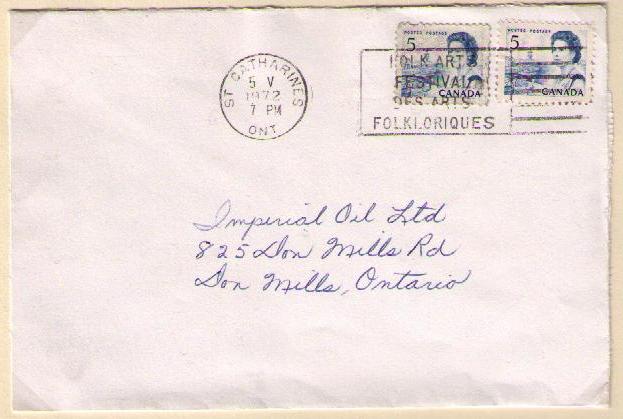 POSTES POSTAGE
5
CANADA
POSTES POSTAGE
5
CANADA
ST CATHARINES
5 V
1972
7 PM
ONT
FOLK ARTS
FESTIVAL
DES ARTS
FOLKLORIQUES
Imperial Oil Ltd
825 Don Mills Rd
Don Mills, Ontario